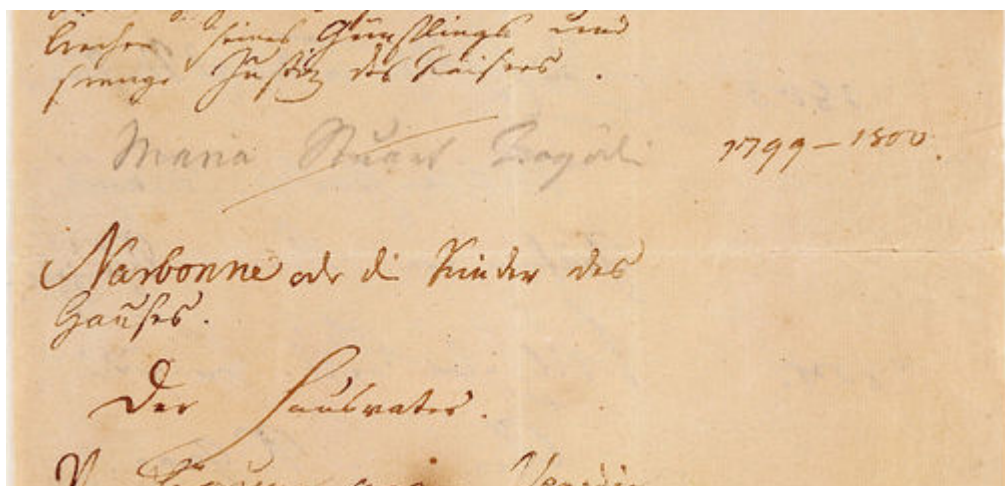 brechen seines Günstlings und
strenge Justiz des Kaisers.
Maria Stuart Tragödi 1799–1800.
Narbonne oder die Kinder des
Hauses.
Der Hausvater.